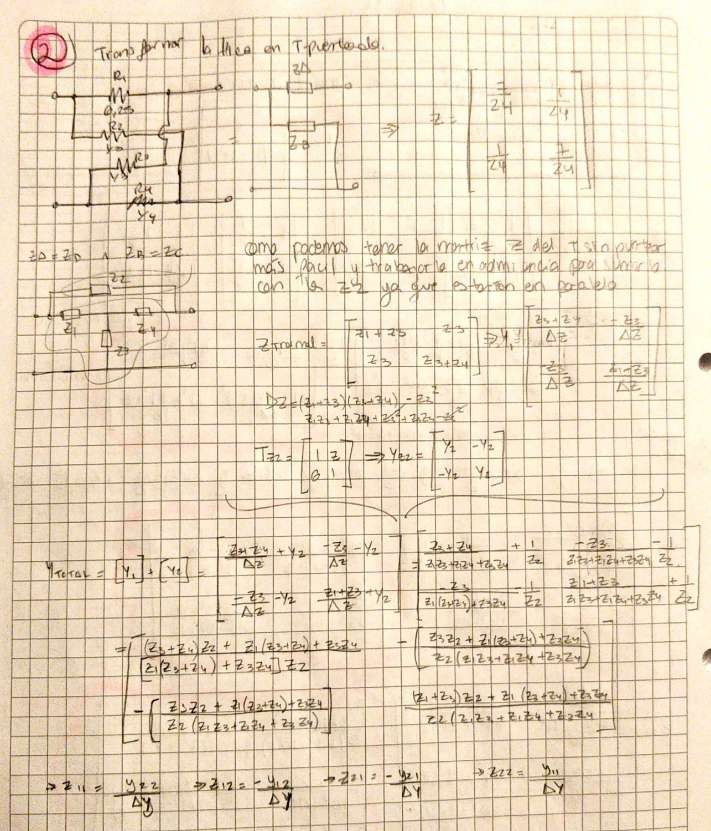 2 Transformar lattice en T-puenteado.
R1
0,25
R2
R3
R4
1/4
ZA
ZB
=
⇒ Z = [ 7/24 1/24
1/24 7/24 ]
ZA = ZD ∧ ZB = ZC
Z2
Z1 Z4
Z3
como podemos tener la matriz Z del T sin puentear
más fácil y trabajarla en admitancia para sumarla
con la YZ2 ya que estarían en paralelo
Ztnormal = [ Z1+Z3 Z3
Z3 Z3+Z4 ] ⇒ Y1 = [ Z3+Z4/ΔZ -Z3/ΔZ
-Z3/ΔZ Z1+Z3/ΔZ ]
DZ = (Z1+Z3)(Z3+Z4) - Z3²
Z1Z3+Z1Z4+Z3²+Z3Z4-Z3²
TZ2 = [ 1 Z
0 1 ] ⇒ YZ2 = [ Y2 -Y2
-Y2 Y2 ]
YTOTAL = [Y1] + [Y2] = [ Z3+Z4/ΔZ + Y2 -Z3/ΔZ - Y2
-Z3/ΔZ - Y2 Z1+Z3/ΔZ + Y2 ]
= [ Z3+Z4/Z1Z3+Z1Z4+Z3Z4 + 1/Z2 -Z3/Z1Z3+Z1Z4+Z3Z4 - 1/Z2
-Z3/Z1(Z3+Z4)+Z3Z4 - 1/Z2 Z1+Z3/Z1Z3+Z1Z4+Z3Z4 + 1/Z2 ]
= [ (Z3+Z4)Z2 + Z1(Z3+Z4)+Z3Z4/[Z1(Z3+Z4)+Z3Z4]Z2 -(Z3Z2+Z1(Z3+Z4)+Z3Z4/Z2(Z1Z3+Z1Z4+Z3Z4))
-[Z3Z2+Z1(Z3+Z4)+Z3Z4/Z2(Z1Z3+Z1Z4+Z3Z4)] (Z1+Z3)Z2+Z1(Z3+Z4)+Z3Z4/Z2(Z1Z3+Z1Z4+Z3Z4 ]
→ Z11 = Y22/ΔY ⇒ Z12 = -Y12/ΔY → Z21 = -Y21/ΔY → Z22 = Y11/ΔY